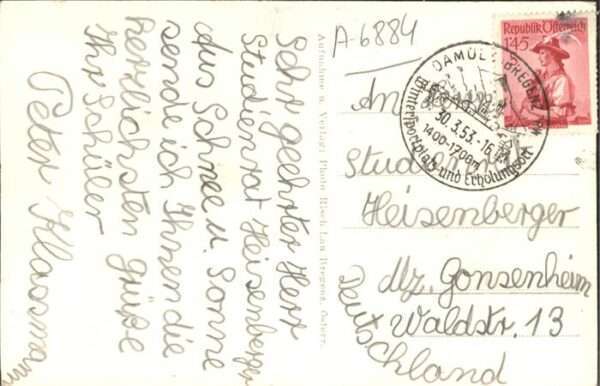 Sehr geehrter Herr
Studienrat Heisenberger
Aus Schnee u. Sonne
sende ich Ihnen die
herzlichsten Grüße
Ihr Schüler
Peter Klassmann
Aufnahme u. Verlag: Photo Risch-Lau Bregenz, Österr.
A-6884
Republik Österreich
1.45
DAMÜLS BREGENZ
30.3.53.-16
1400-1700m
Wintersportplatz und Erholungsort
An
Studienrat
Heisenberger
Mz. Gonsenheim
Waldstr. 13
Deutschland